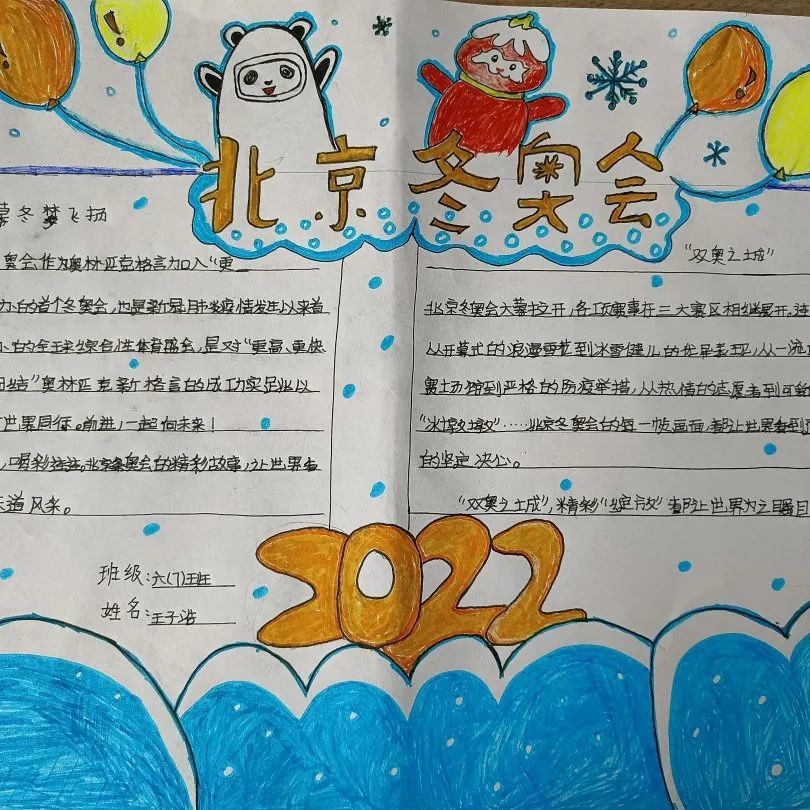 北京冬奥会
冬梦飞扬
奥会作为奥林匹克格言加入“更
办的首个冬奥会,也是新冠肺炎疫情发生以来首
办的全球综合性体育盛会,是对“更高、更快
团结”奥林匹克新格言的成功实足此以
世界同行。前进,一起向未来!
,喝彩连连,北京冬奥会的精彩故事,让世界看
风采。
“双奥之城”
北京冬奥会大幕拉开,各项赛事在三大赛区相继展开,
从开幕式的浪漫雪花到冰雪健儿的优异表现,从一流
赛场馆到严格的防疫举措,从热情的志愿者到可
“冰墩墩”……北京冬奥会的每一帧画面,都让世界看到
的坚定决心。
“双奥之城”,精彩“绽放”都让世界为之瞩目
班级:六(7)班
姓名:王子浩
2022